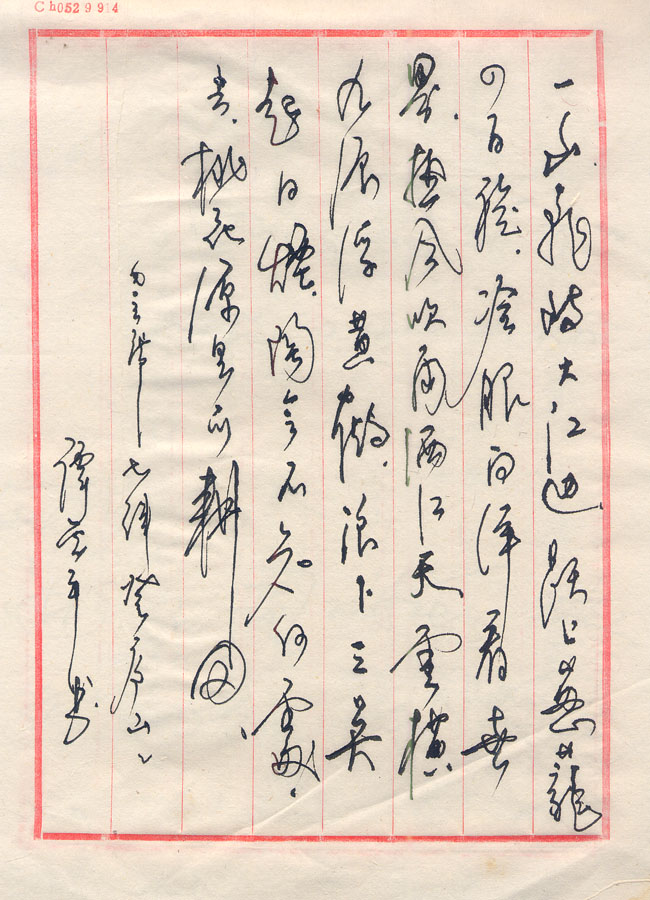 Ch052 9 914
一山飛峙大江边跃上葱蘢
四百旋.冷眼向洋看世
界.热风吹雨洒江天雲横
九派浮黄鹤.浪下三吴
起白烟.陶令不知何處.
去.桃花源里可耕田、
毛主席七律登庐山
譚年书